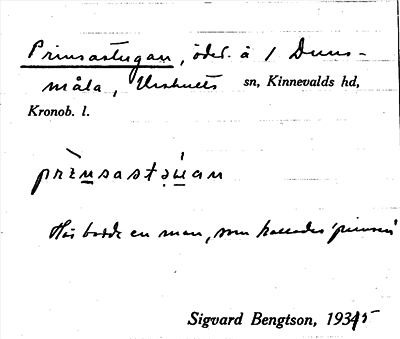 Prinsastugan, öde. å 1 Duns-
måla, Urshults sn, Kinnevalds hd,
Kronob. l.
prìnsastə́uan
Här bodde en man, som kallades 'prinsen'
Sigvard Bengtson, 1935